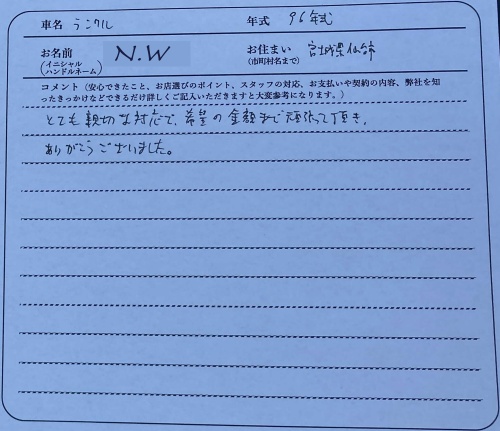 車名 ランクル 年式 96年式
お名前 (イニシャル ハンドルネーム) N.W お住まい (市町村名まで) 宮城県仙台市
コメント（安心できたこと、お店選びのポイント、スタッフの対応、お支払いや契約の内容、弊社を知
ったきっかけなどできるだけ詳しくご記入いただきますと大変参考になります。）
とても親切な対応で、希望の金額まで頑張って頂き、
ありがとうございました。